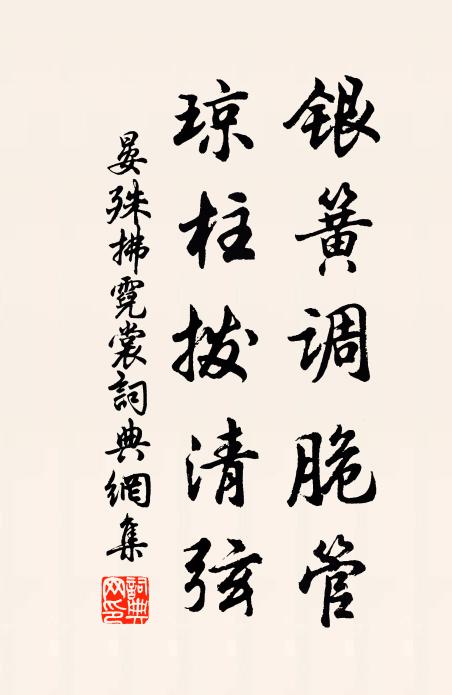 银簧调脆管
琼柱拨清弦
晏殊拂霓裳詞典網集
詞典网印